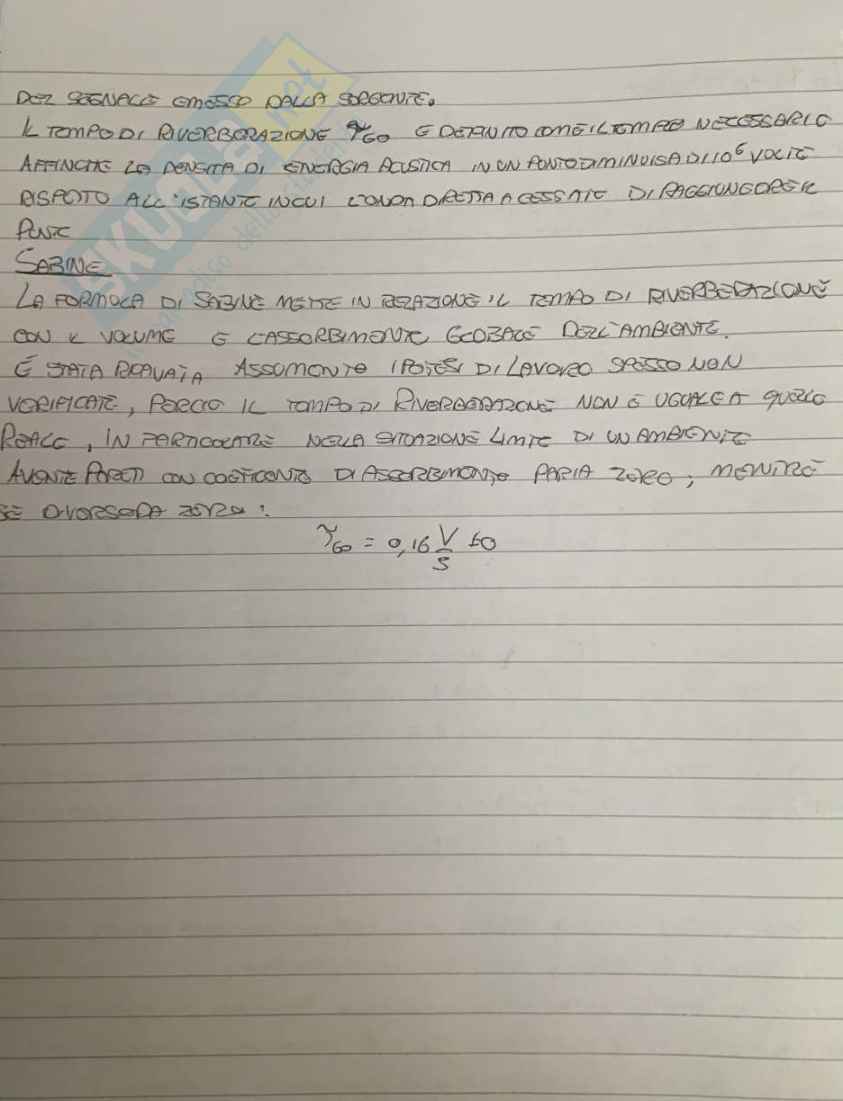 DEL SEGNALE EMESSO DALLA SORGENTE.
IL TEMPO DI RIVERBERAZIONE τ60 E DEFINITO COME IL TEMPO NECESSARIO
AFFINCHE LA DENSITA DI ENERGIA ACUSTICA IN UN PUNTO DIMINUISA DI 10⁶ VOLTE
RISPETTO ALL'ISTANTE IN CUI L'ONDA DIRETTA A CESSATO DI RAGGIUNGERE IL
PUNTO
SABINE
LA FORMULA DI SABINE METTE IN RELAZIONE IL TEMPO DI RIVERBERAZIONE
CON IL VOLUME E L'ASSORBIMENTO GLOBALE DELL'AMBIENTE.
É STATA RICAVATA ASSUMENTO IPOTESI DI LAVORO SPESSO NON
VERIFICATE, PERCIO IL TEMPO DI RIVERBERAZIONE NON E UGUALE A QUELLO
REALE, IN PARTICOLARE NELLA SITUAZIONE LIMITE DI UN AMBIENTE
AVENTE PARETI CON COEFICENTE DI ASSORBIMENTO PARI A ZERO, MENTRE
SE DIVERSO DA ZERO:
τ60 = 0,16 V/S ≠0
SKUOLA.net